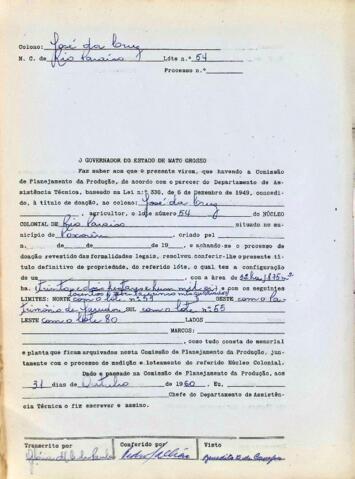 Colono: José da Cruz
N. C. de Rio Paraiso Lóte n.º 54
Processo n.º
O GOVERNADOR DO ESTADO DE MATO GROSSO
Faz saber aos que o presente virem, que havendo a Comissão
de Planejamento da Produção, de acordo com o parecer do Departamento de As-
sistência Técnica, baseado na Lei n.º 336, de 6 de Dezembro de 1949, concedi-
do, à título de doação, ao colono: José da Cruz
, agricultor, o lóte número 54 do NÚCLEO
COLONIAL DE Rio Paraiso situado no mu-
nicípio de , criado pel
n.º de de de 19 , e achando-se o processo de
doação revestido das formalidades legais, resolveu conferir-lhe o presente tí-
tulo definitivo de propriedade, do referido lóte, o qual tem a configuração
de um com a área de
ha. (trinta e dois hectares e
) e com os seguintes
LIMITES: NORTE com o lote nº 53 OESTE com o Pa-
trimônio de SUL com o lote nº 55
LESTE com o lote 80 LADOS
MARCOS: , como tudo consta do memorial
e planta que ficam arquivados nesta Comissão de Planejamento da Produção, jun-
tamente com o processo de medição e lotemento do referido Núcleo Colonial.
Dado e passado na Comissão de Planejamento da Produção, aos
31 dias de de 1960. Eu,
Chefe do Departamento de Assistên-
cia Técnica o fiz escrever e assino.
Transcrito por Conferido por Visto
Benedito de Campos